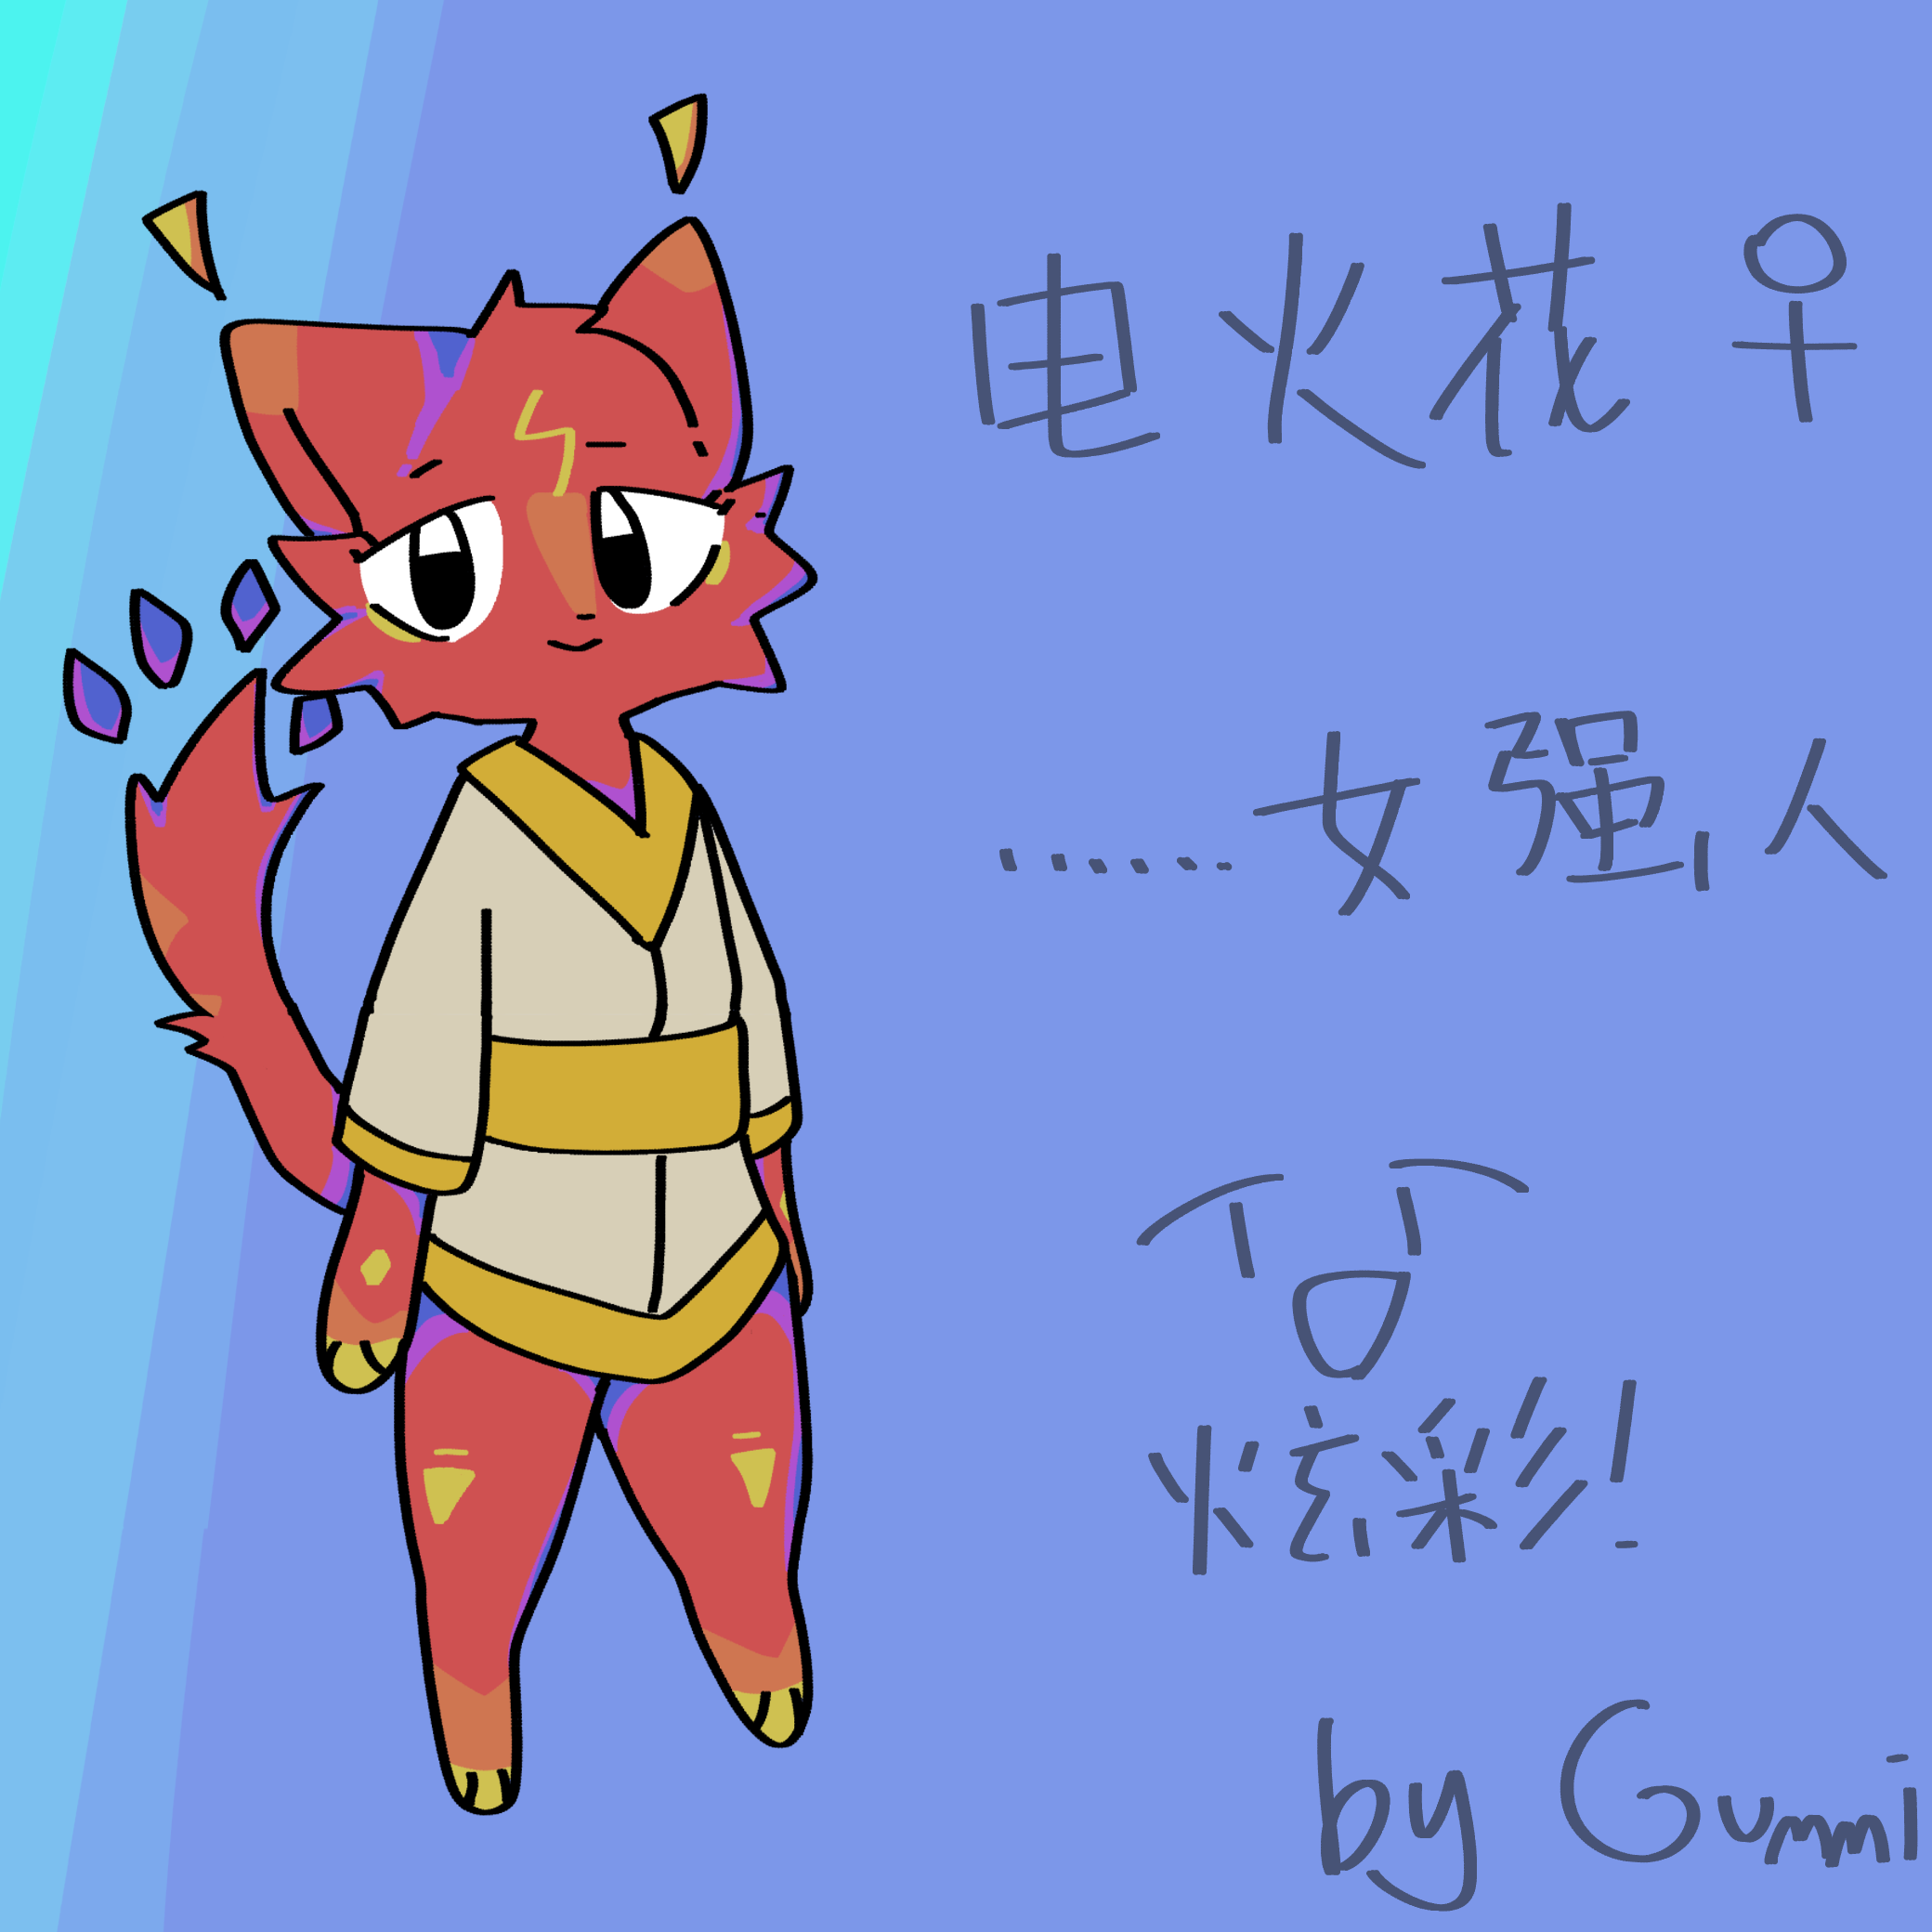 电火花♀
……女强人
炫彩!
by Gummi